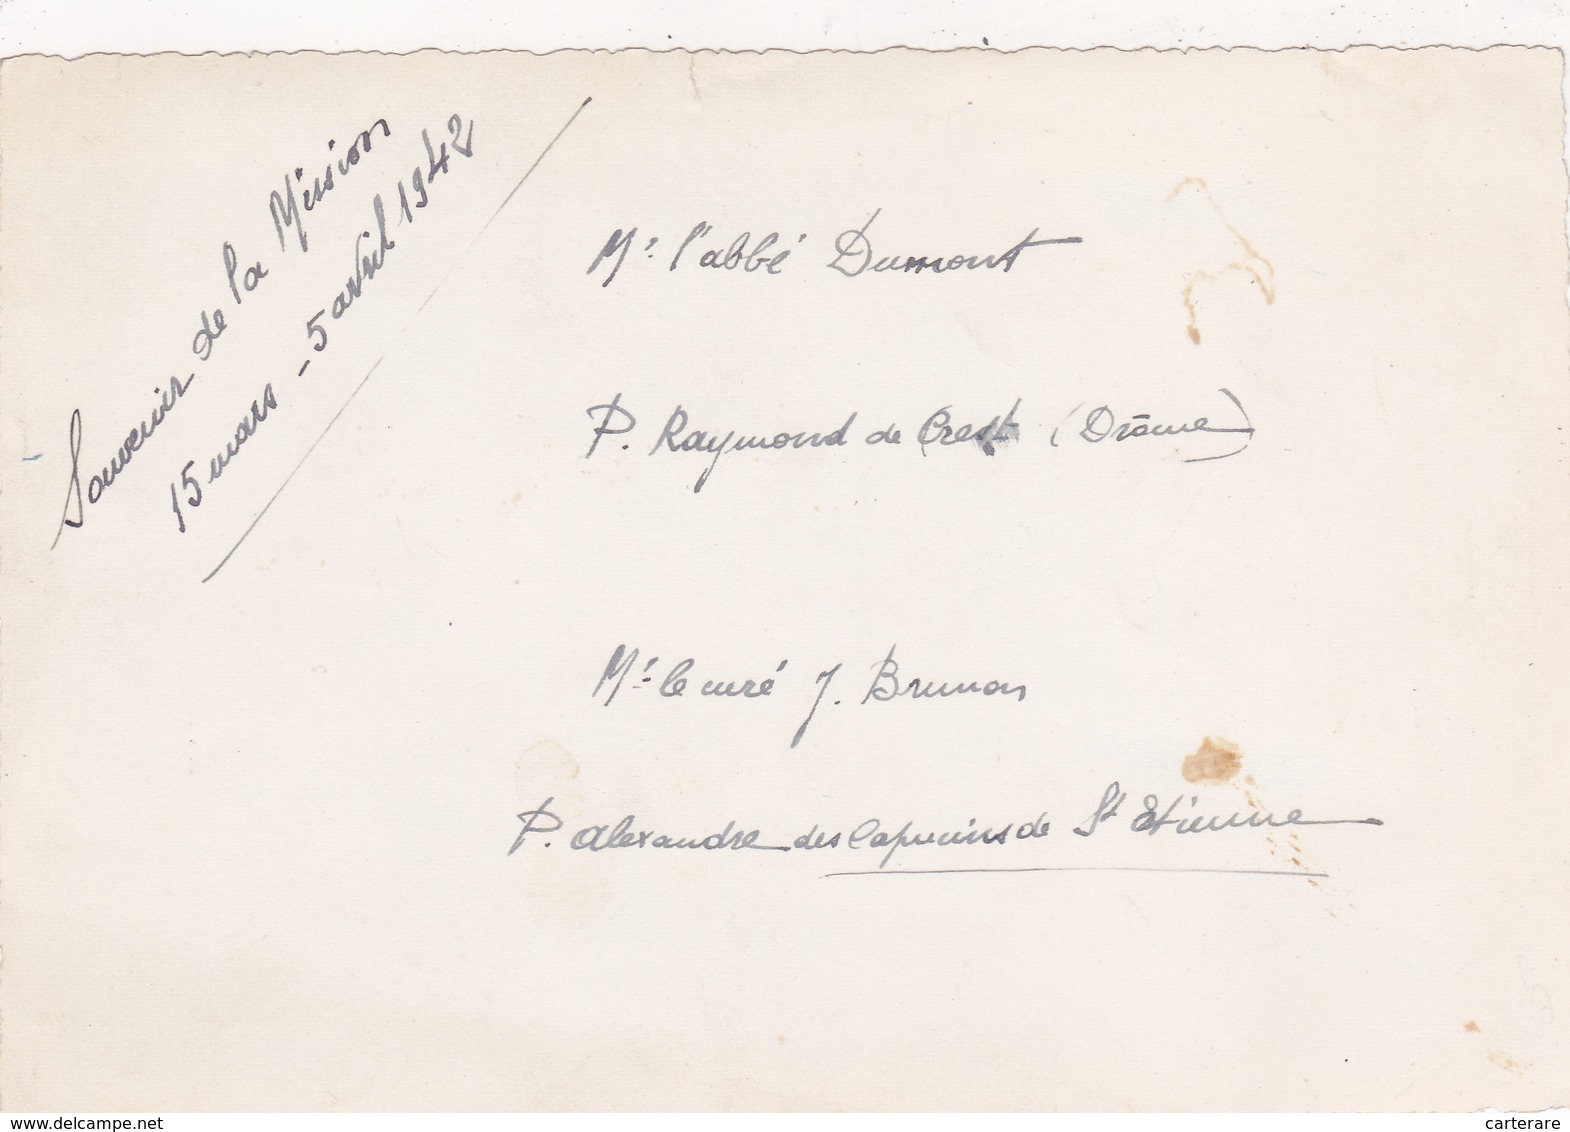 Souvenir de la Mission
15 mars - 5 avril 1942
Mr l'abbé Dumont
P. Raymond de Crest (Drôme)
Mr le curé J. Brunon
P. Alexandre des Capucins de St Etienne
delcampe.net
carterare